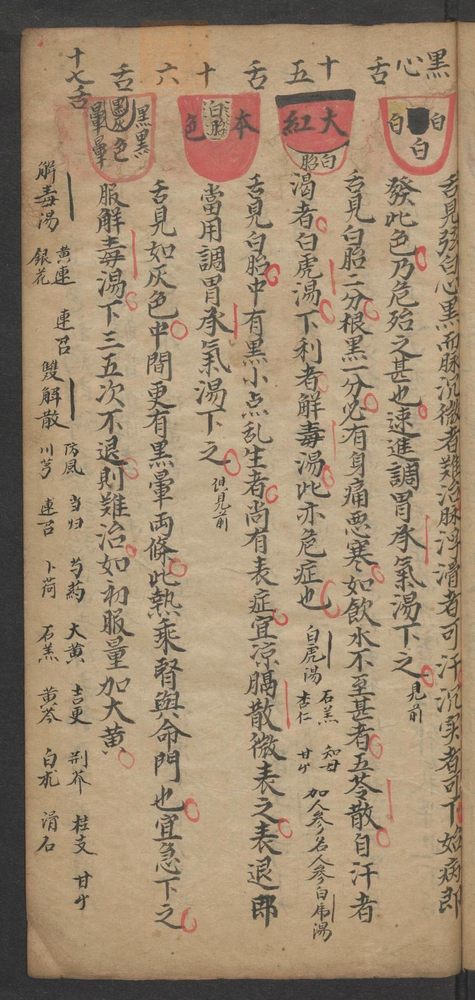 黑心舌
白 白 白
舌見弦白心黑而脉沉微者難治脉浮滑者可汗沉实者可下始病即
發此色乃危殆之甚也速進調胃承氣湯下之 見前
十五舌
大紅
白胎
舌見白胎二分根黑一分必有身痛悪寒如飲水不至甚者五苓散自汗者
渴者白虎湯下利者解毒湯此亦危症也 白虎湯 石羔 知母 杏仁 甘艸 加人參名人參白虎湯
十六舌
本色
白胎
舌見白胎中有黑小点乱生者尚有表症宜凉膈散微表之表退郎
當用調胃承氣湯下之 俱見前
十七舌
黑暈 灰色 黑暈
舌見如灰色中間更有黑暈両條此熱乘腎與命門也宜急下之
服解毒湯下三五次不退則難治如初服量加大黃
解毒湯 黃連 銀花 連召 雙解散 防風 川芎 当归 連召 芍药 卜荷 大黄 石羔 吉更 黄芩 荆芥 白朮 桂支 滑石 甘艸